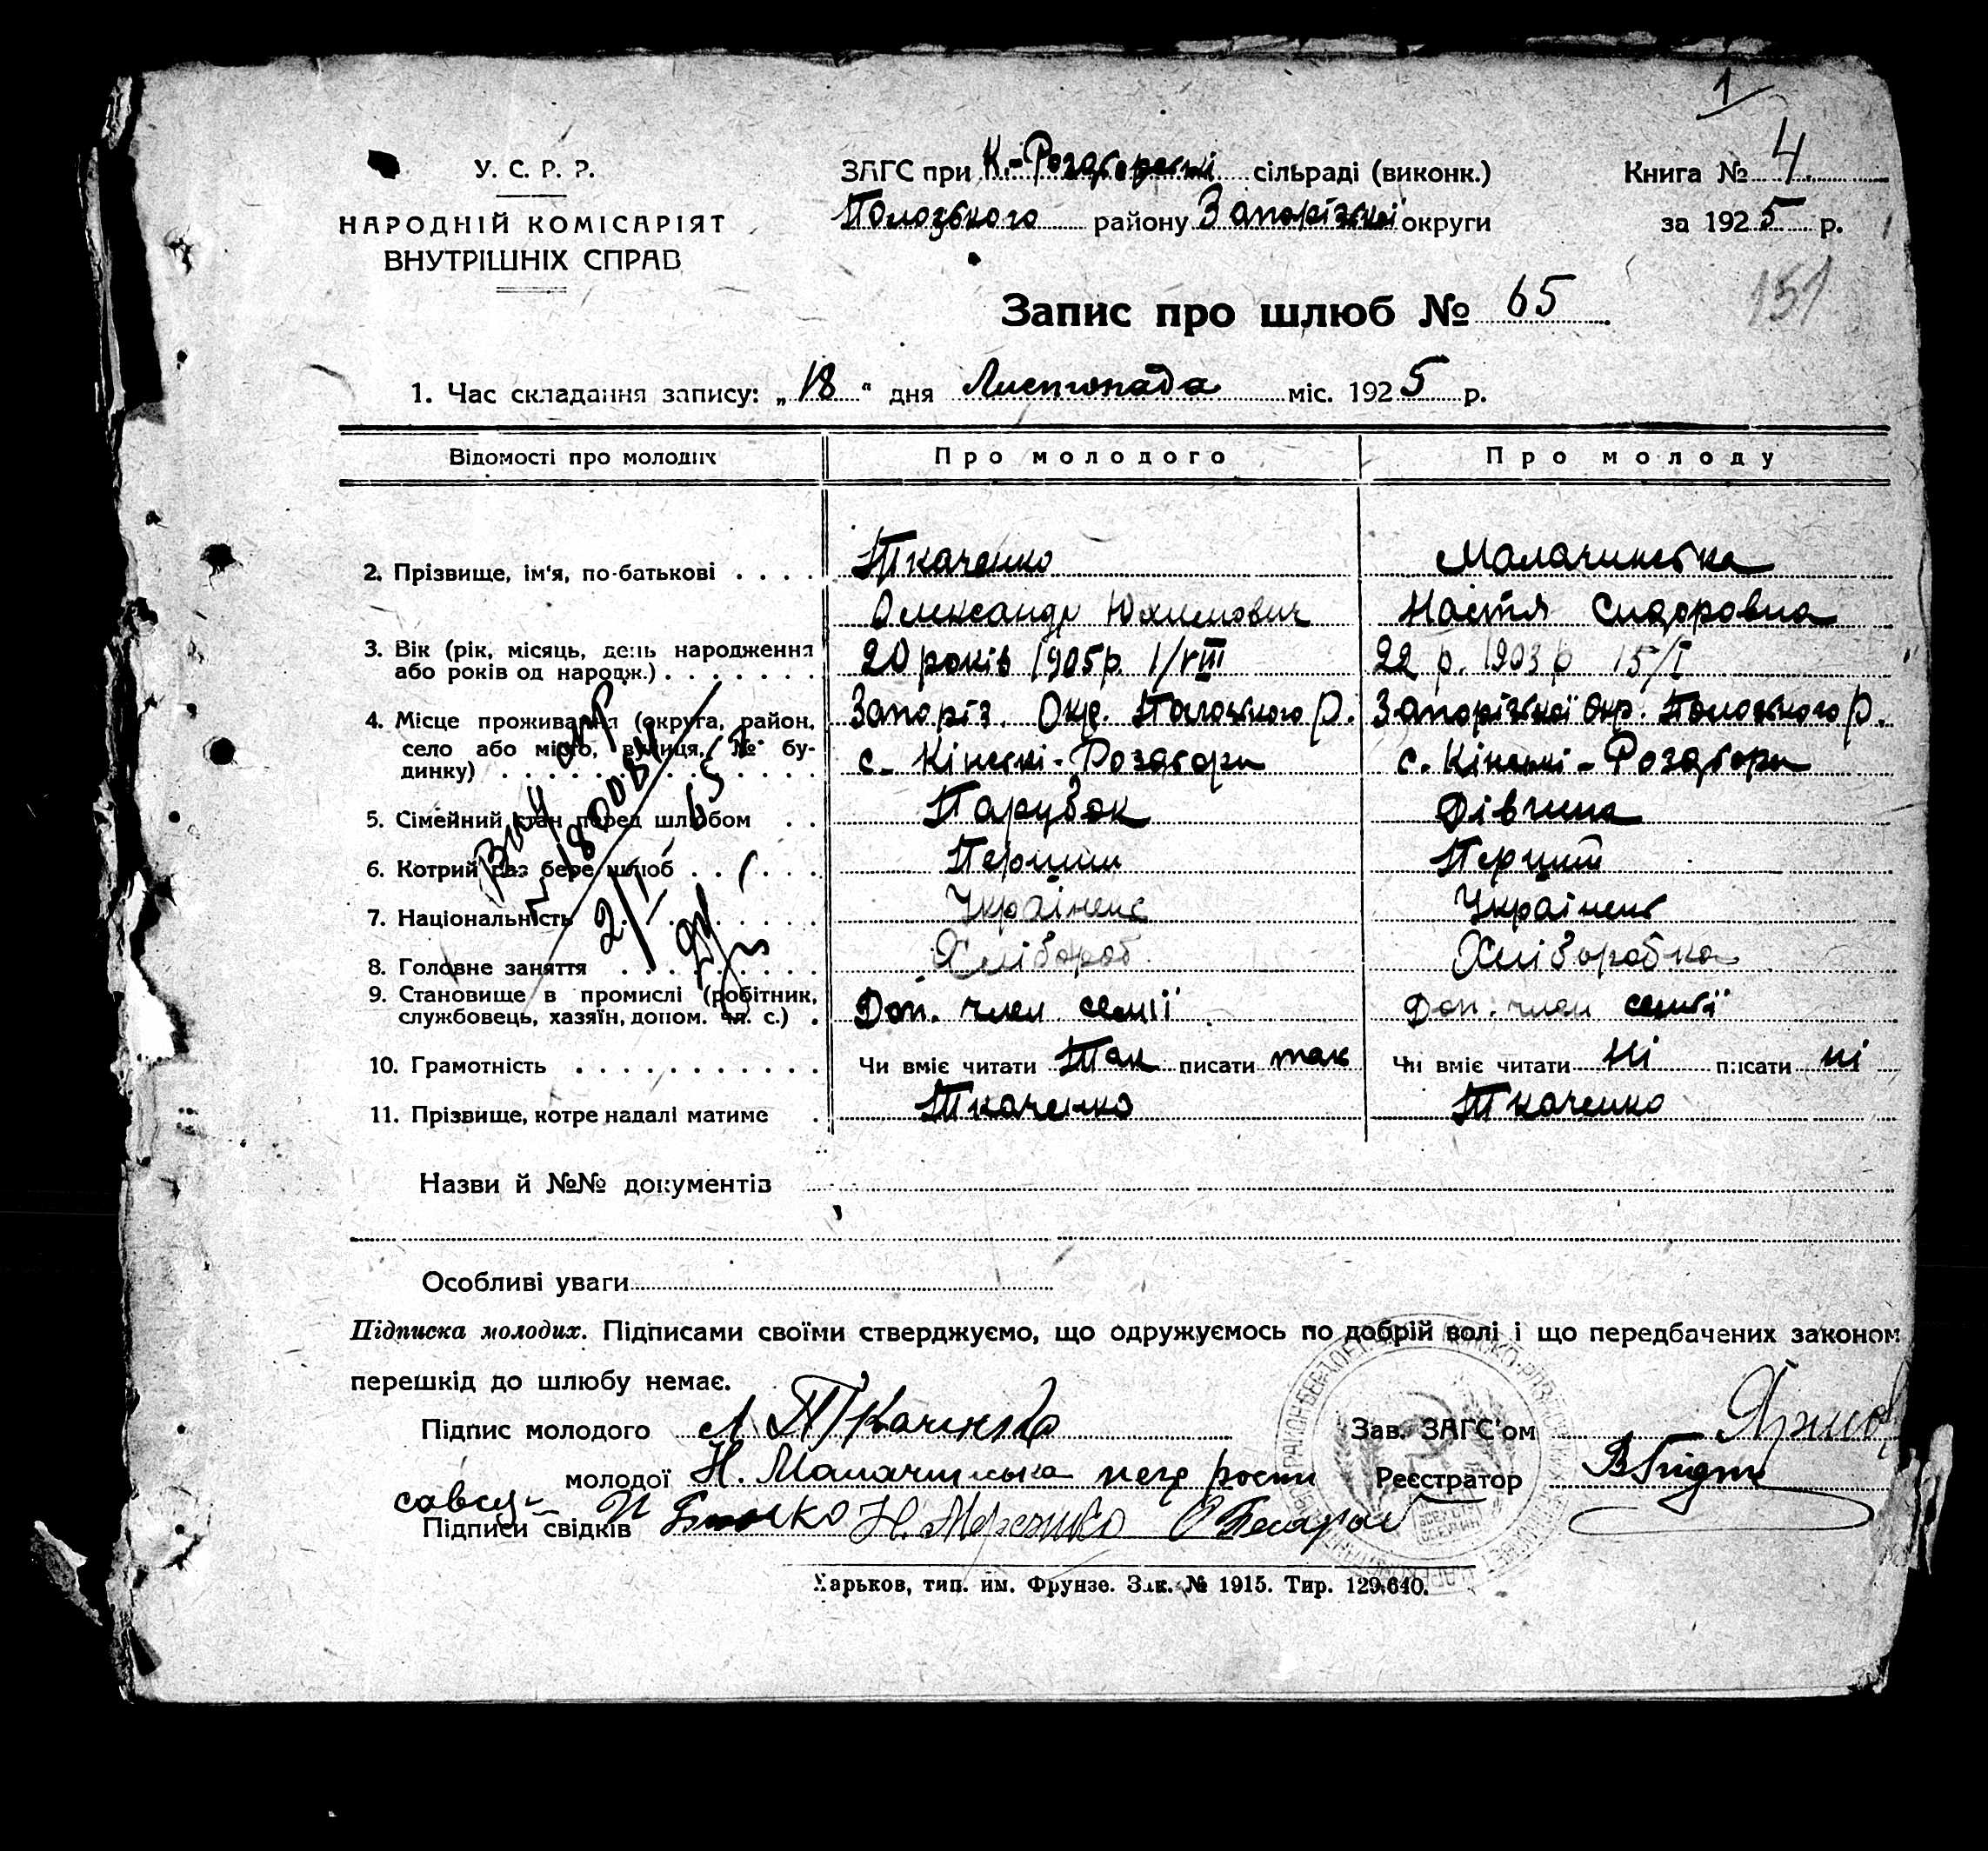 1
У. С. Р. Р.
НАРОДНІЙ КОМІСАРІЯТ
ВНУТРІШНІХ СПРАВ
ЗАГС при К.-Роздорській сільраді (виконк.)
Пологського району Запорізької округи
Книга № 4.
за 1925 р.
151
Запис про шлюб № 65
1. Час складання запису: „18“ дня Листопада міс. 1925 р.
Відомості про молодих Про молодого Про молоду
2. Прізвище, ім'я, по-батькові . . . . Ткаченко Малачинська
Олександр Юхимович Настя Сидоровна
3. Вік (рік, місяць, день народження 20 років 1905 р. 1/VIII 22 р. 1903 р 15/I
або років од народж.) . . . . . . .
4. Місце проживання (округа, район, Запоріз. Окр. Пологського Р. Запорізької Окр. Пологського Р.
село або місто, вулиця, № бу-
динку) . . . . . . . . . . с. Кінські-Роздори с. Кінські-Роздори
5. Сімейний стан перед шлюбом . . Парубок Дівчина
6. Котрий раз бере шлюб . . . . Перший Перший
7. Національність . . . . . . . Українець Українець
8. Головне заняття . . . . . . . Хлібороб. Хліборобка
9. Становище в промислі (робітник,
службовець, хазяїн, допом. чл. с.) . Доп. член семії Доп. член семії
10. Грамотність . . . . . . . . . . Чи вміє читати Так писати так Чи вміє читати Ні писати ні
11. Прізвище, котре надалі матиме . Ткаченко Ткаченко
Назви й №№ документів
Особливі уваги
Підписка молодих. Підписами своїми стверджуємо, що одружуємось по добрій волі і що передбачених законом
перешкід до шлюбу немає.
Підпис молодого Ткаченко Зав. ЗАГС'ом
молодої Н. Малачинська Реєстратор
Підписи свідків
Харьков, тип. им. Фрунзе. Зак. № 1915. Тир. 129.640.